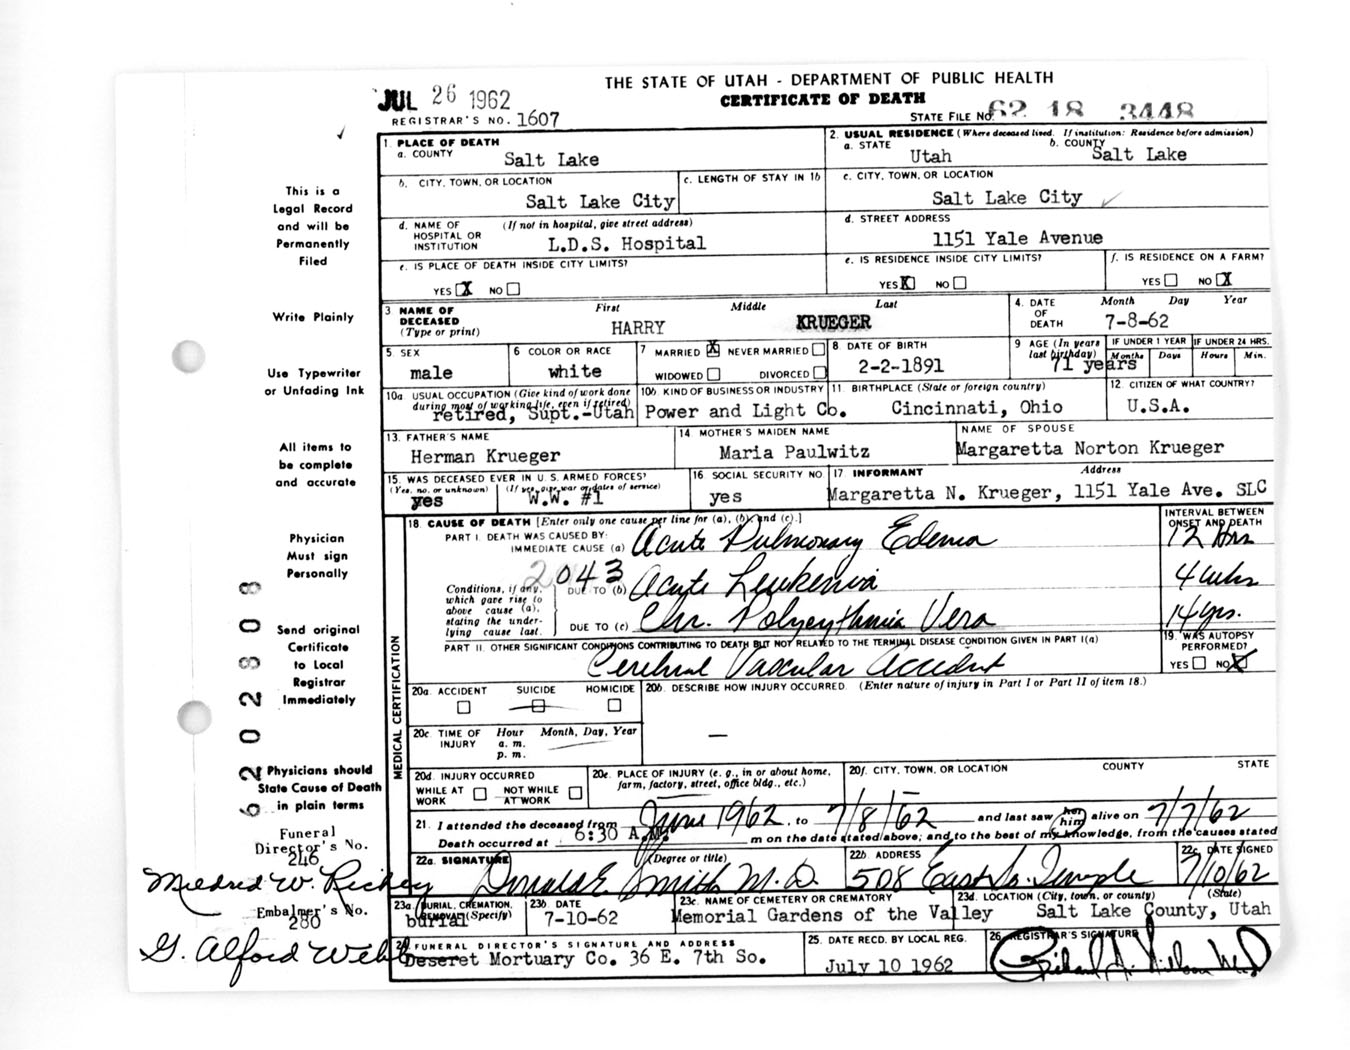 THE STATE OF UTAH - DEPARTMENT OF PUBLIC HEALTH
CERTIFICATE OF DEATH
JUL 26 1962
REGISTRAR'S NO. 1607
STATE FILE NO. 62 18 3448
This is a
Legal Record
and will be
Permanently
Filed
Write Plainly
Use Typewriter
or Unfading Ink
All items to
be complete
and accurate
Physician
Must sign
Personally
Send original
Certificate
to Local
Registrar
Immediately
Physicians should
State Cause of Death
in plain terms
Funeral
Director's No.
246
Mildred W. Rickey
Embalmer's No.
280
G. Alford Webb
1. PLACE OF DEATH
a. COUNTY Salt Lake
2. USUAL RESIDENCE (Where deceased lived. If institution: Residence before admission)
a. STATE Utah
b. COUNTY Salt Lake
b. CITY, TOWN, OR LOCATION
Salt Lake City
c. LENGTH OF STAY IN 1b
c. CITY, TOWN, OR LOCATION
Salt Lake City
d. NAME OF HOSPITAL OR INSTITUTION (If not in hospital, give street address)
L.D.S. Hospital
d. STREET ADDRESS
1151 Yale Avenue
e. IS PLACE OF DEATH INSIDE CITY LIMITS?
YES X NO
e. IS RESIDENCE INSIDE CITY LIMITS?
YES X NO
f. IS RESIDENCE ON A FARM?
YES NO X
3 NAME OF DECEASED (Type or print)
First Middle Last
HARRY KRUEGER
4. DATE OF DEATH
Month Day Year
7-8-62
5. SEX
male
6 COLOR OR RACE
white
7 MARRIED X NEVER MARRIED
WIDOWED DIVORCED
8. DATE OF BIRTH
2-2-1891
9 AGE (In years last birthday)
71 years
IF UNDER 1 YEAR
Months Days
IF UNDER 24 HRS.
Hours Min.
10a USUAL OCCUPATION (Give kind of work done during most of working life, even if retired)
retired, Supt.-Utah
10b. KIND OF BUSINESS OR INDUSTRY
Power and Light Co.
11. BIRTHPLACE (State or foreign country)
Cincinnati, Ohio
12. CITIZEN OF WHAT COUNTRY?
U.S.A.
13. FATHER'S NAME
Herman Krueger
14 MOTHER'S MAIDEN NAME
Maria Paulwitz
NAME OF SPOUSE
Margaretta Norton Krueger
15. WAS DECEASED EVER IN U.S. ARMED FORCES?
(Yes, no, or unknown) (If yes, give war or dates of service)
yes W.W. #1
16 SOCIAL SECURITY NO.
yes
17. INFORMANT Address
Margaretta N. Krueger, 1151 Yale Ave. SLC
MEDICAL CERTIFICATION
18. CAUSE OF DEATH [Enter only one cause per line for (a), (b), and (c).]
INTERVAL BETWEEN ONSET AND DEATH
PART I. DEATH WAS CAUSED BY:
IMMEDIATE CAUSE (a) Acute Pulmonary Edema 12 Hrs
2043
Conditions, if any, which gave rise to above cause (a), stating the underlying cause last.
DUE TO (b) Acute Leukemia 4 wks
DUE TO (c) Chr. Polycythemia Vera 14 yrs.
PART II. OTHER SIGNIFICANT CONDITIONS CONTRIBUTING TO DEATH BUT NOT RELATED TO THE TERMINAL DISEASE CONDITION GIVEN IN PART I(a)
Cerebral Vascular Accident
19. WAS AUTOPSY PERFORMED?
YES NO X
20a. ACCIDENT SUICIDE HOMICIDE
20b. DESCRIBE HOW INJURY OCCURRED. (Enter nature of injury in Part I or Part II of item 18.)
20c. TIME OF INJURY
Hour Month, Day, Year
a. m.
p. m.
20d. INJURY OCCURRED
WHILE AT WORK NOT WHILE AT WORK
20e. PLACE OF INJURY (e. g., in or about home, farm, factory, street, office bldg., etc.)
20f. CITY, TOWN, OR LOCATION COUNTY STATE
21. I attended the deceased from June 1962, to 7/8/62 and last saw her him alive on 7/7/62
Death occurred at 6:30 A.M. m on the date stated above; and to the best of my knowledge, from the causes stated
22a. SIGNATURE (Degree or title)
Donald E. Smith M.D.
22b. ADDRESS
508 East So. Temple
22c. DATE SIGNED
7/10/62
23a. BURIAL, CREMATION, REMOVAL (Specify)
burial
23b. DATE
7-10-62
23c. NAME OF CEMETERY OR CREMATORY
Memorial Gardens of the Valley
23d. LOCATION (City, town, or county) (State)
Salt Lake County, Utah
24. FUNERAL DIRECTOR'S SIGNATURE AND ADDRESS
Deseret Mortuary Co. 36 E. 7th So.
25. DATE RECD. BY LOCAL REG.
July 10 1962
26. REGISTRAR'S SIGNATURE